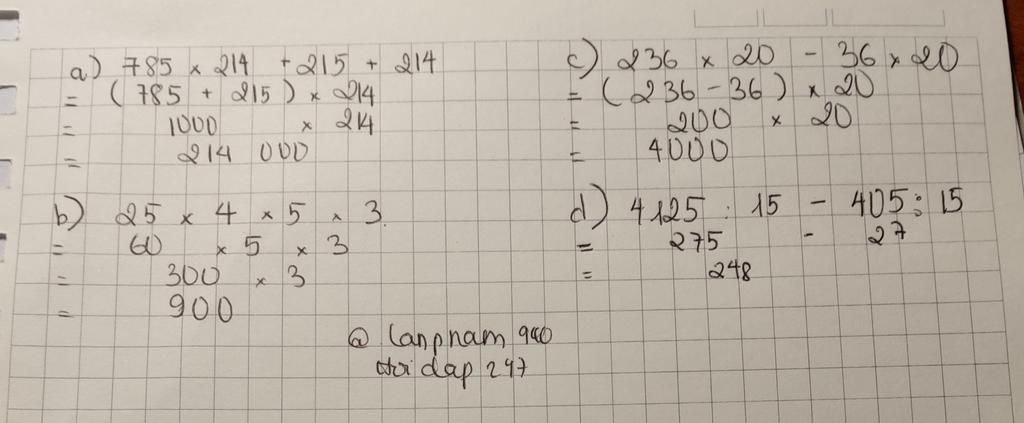 a) 785 × 214 + 215 + 214
= (785 + 215) × 214
= 1000 × 214
= 214 000
b) 25 × 4 × 5 × 3
= 60 × 5 × 3
= 300 × 3
= 900
c) 236 × 20 - 36 × 20
= (236 - 36) × 20
= 200 × 20
= 4000
d) 4125 : 15 - 405 : 15
= 275 - 27
= 248
@ lanpham 940
hoidap 247